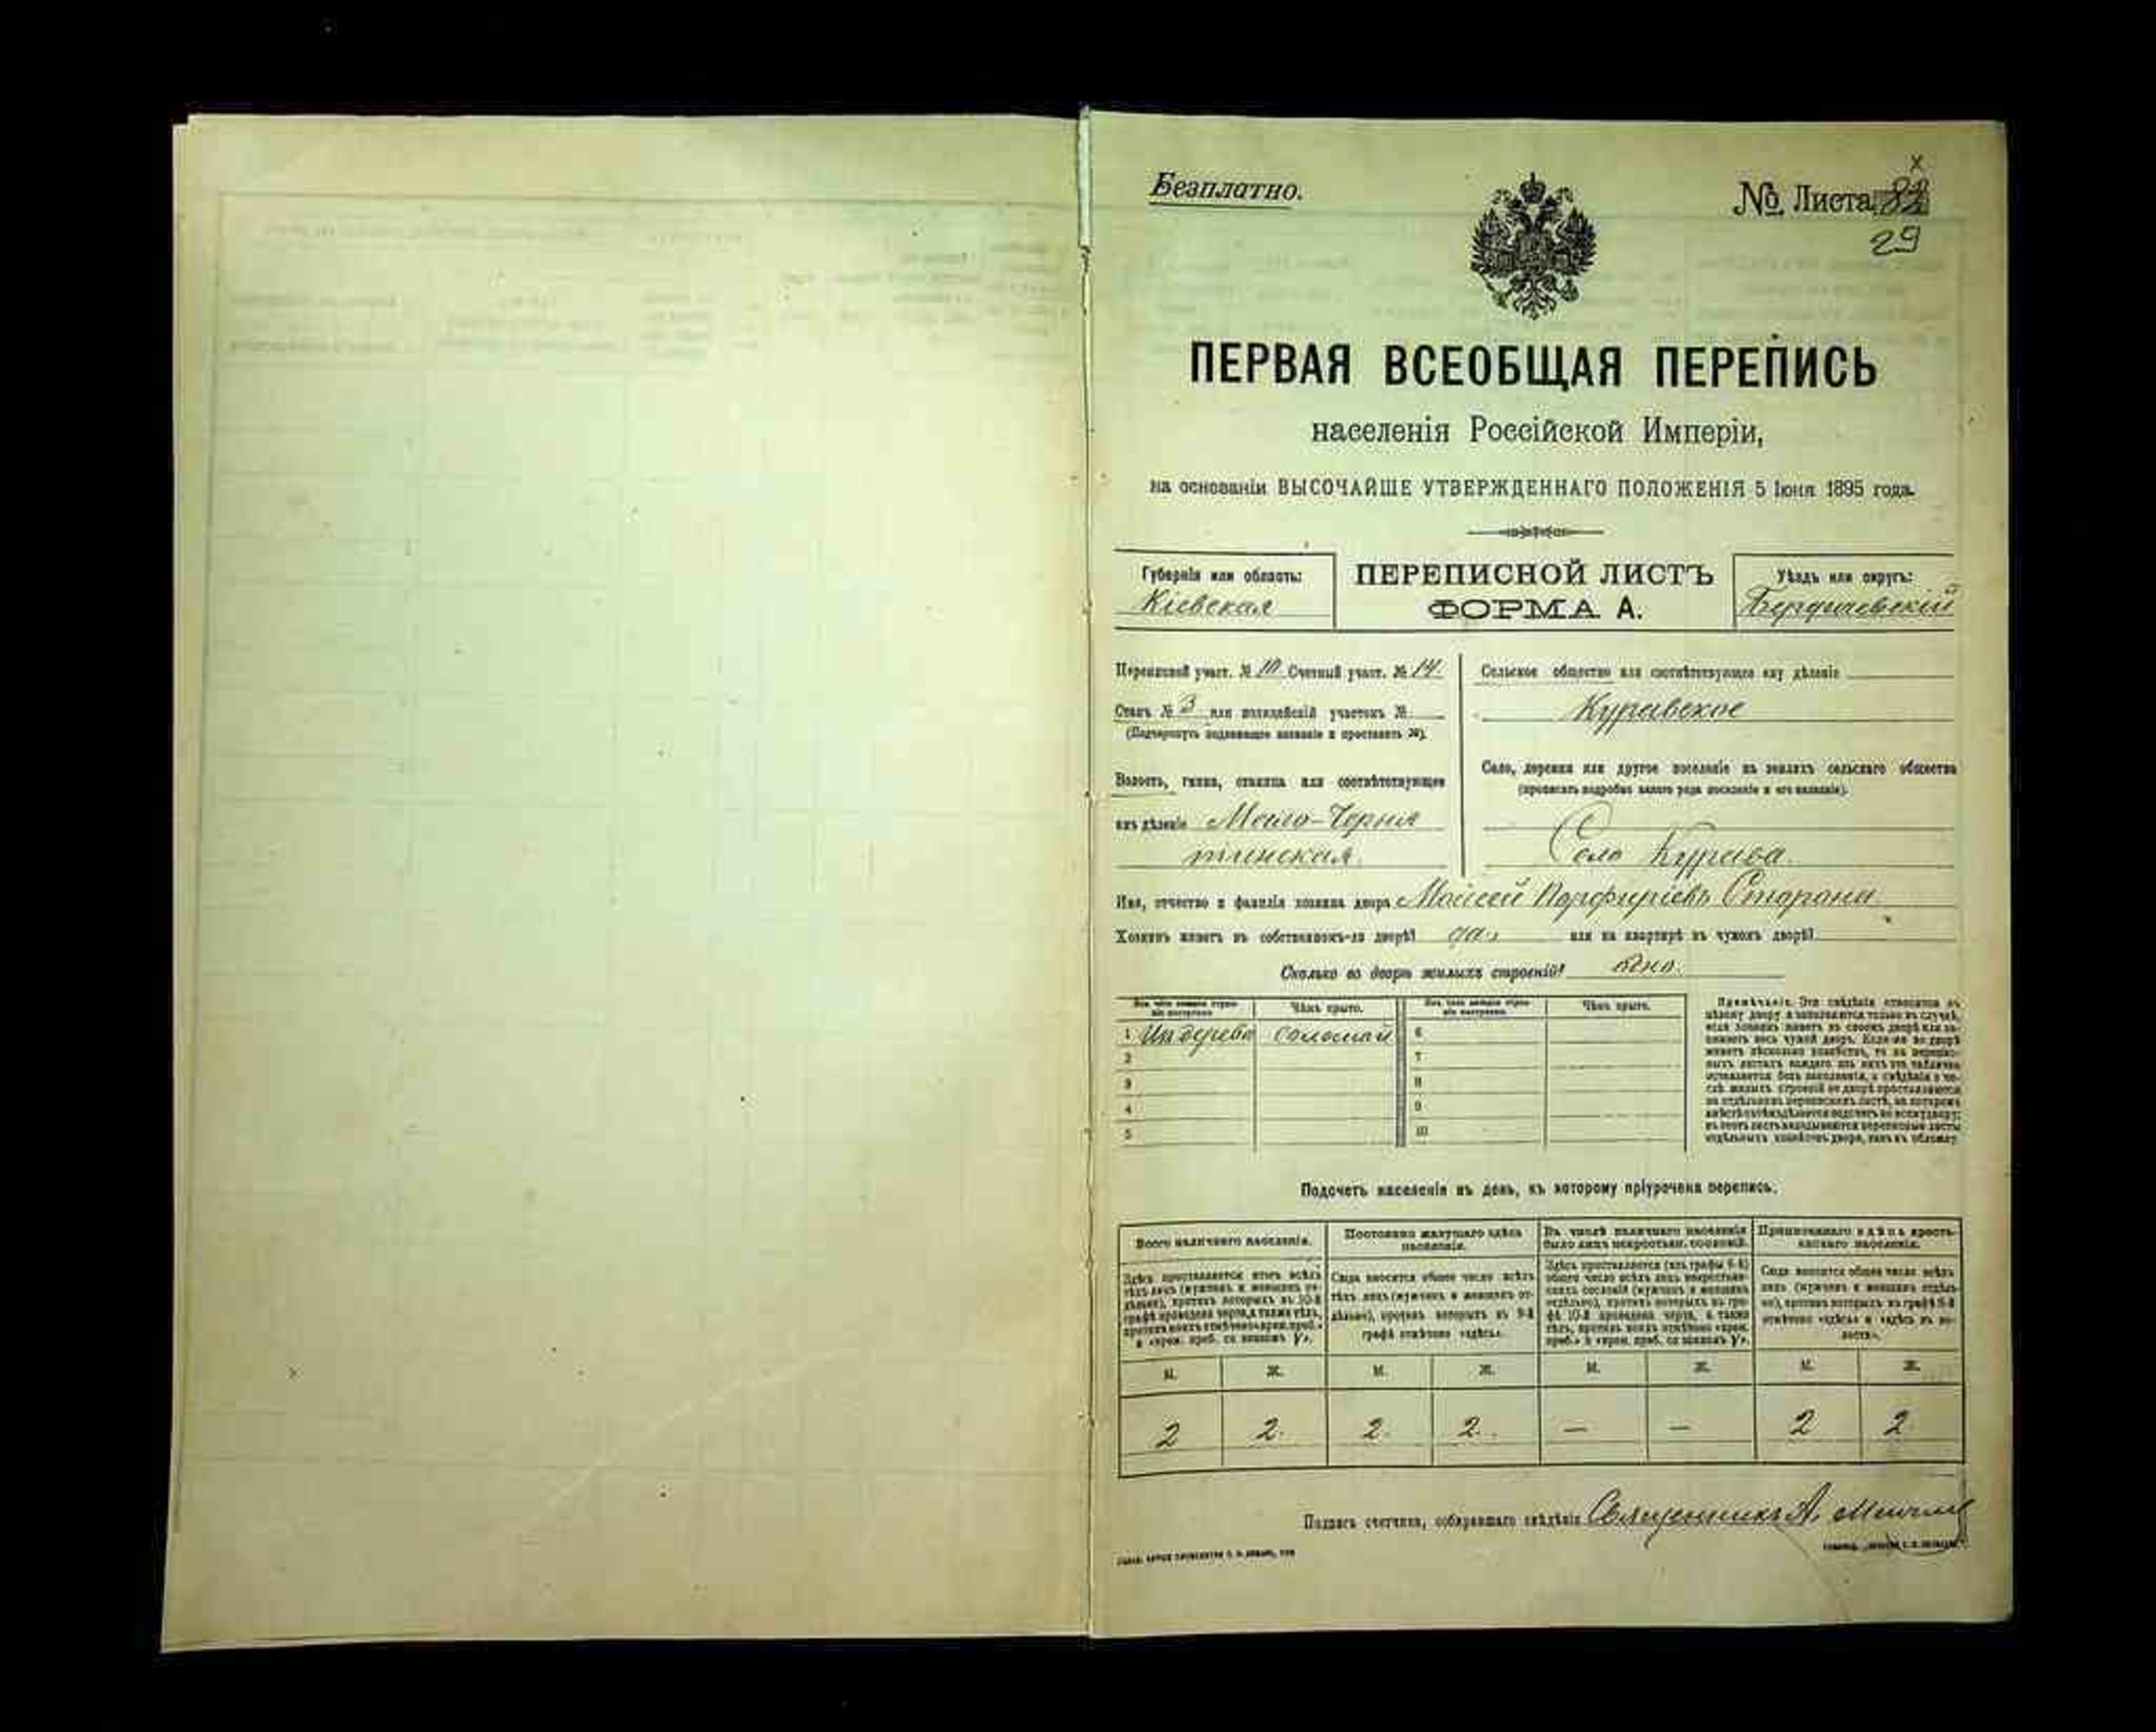 Безплатно.
№ Листа
29
ПЕРВАЯ ВСЕОБЩАЯ ПЕРЕПИСЬ
населенія Россійской Имперіи,
на основаніи ВЫСОЧАЙШЕ УТВЕРЖДЕННАГО ПОЛОЖЕНІЯ 5 Іюня 1895 года.
Губернія или область:
Кіевская
ПЕРЕПИСНОЙ ЛИСТЪ
ФОРМА А.
Уѣздъ или округъ:
Бердичевскій
Переписной участ. № 10 Счетный участ. № 14.
Станъ № 3 или полицейскій участокъ №
(Подчеркнуть надлежащее названіе и проставить №).
Волость, гмина, станица или соотвѣтствующее
имъ дѣленіе
тинская.
Сельское общество или соотвѣтствующее ему дѣленіе
Село, деревня или другое поселеніе на земляхъ сельскаго общества
(прописать подробно какого рода поселеніе и его названіе).
Село
Имя, отчество и фамилія хозяина двора Моисей Порфиріевъ
Хозяинъ живетъ въ собственномъ-ли дворѣ? да или на квартирѣ въ чужомъ дворѣ?
Сколько во дворѣ жилыхъ строеній?
Изъ чего жилыя строенія построены
Чѣмъ крыто.
Изъ чего жилыя строенія построены
Чѣмъ крыто.
1 Из дерева соломой 6
2 7
3 8
4 9
5 10
Примѣчаніе. Эти свѣдѣнія относятся къ
цѣлому двору и заполняются только въ случаѣ,
если хозяинъ живетъ въ своемъ дворѣ или за-
нимаетъ весь чужой дворъ. Если-же во дворѣ
живетъ нѣсколько хозяйствъ, то на перепис-
ныхъ листахъ каждаго изъ нихъ эта табличка
оставляется безъ заполненія, а свѣдѣнія о чи-
слѣ жилыхъ строеній во дворѣ проставляются
на отдѣльномъ переписномъ листѣ, на которомъ
вмѣстѣ съ тѣмъ дѣлается подсчетъ по всему двору;
въ этотъ листъ вкладываются переписные листы
отдѣльныхъ хозяйствъ двора, какъ въ обложку.
Подсчетъ населенія въ день, къ которому пріурочена перепись.
Всего наличнаго населенія.
Постоянно живущаго здѣсь
населенія.
Въ числѣ наличнаго населенія
было лицъ некрестьян. сословій.
Приписаннаго здѣсь кресть-
янскаго населенія.
Здѣсь проставляется итогъ всѣхъ
тѣхъ лицъ (мужчинъ и женщинъ от-
дѣльно), противъ которыхъ въ 10-й
графѣ проведена черта, а также тѣхъ,
противъ коихъ отмѣчено «врем. преб.»
и «врем. преб. со знакомъ V».
Сюда вносится общее число всѣхъ
тѣхъ лицъ (мужчинъ и женщинъ от-
дѣльно), противъ которыхъ въ 9-й
графѣ отмѣчено «здѣсь».
Здѣсь проставляется (изъ графы 6-й)
общее число всѣхъ лицъ некрестьян-
скихъ сословій (мужчинъ и женщинъ
отдѣльно), противъ которыхъ въ гра-
фѣ 10-й проведена черта, а также
тѣхъ, противъ коихъ отмѣчено «врем.
преб.» и «врем. преб. со знакомъ V».
Сюда вносится общее число всѣхъ
лицъ (мужчинъ и женщинъ отдѣль-
но), противъ которыхъ въ графѣ 8-й
отмѣчено «здѣсь» и «здѣсь въ во-
лости».
М. Ж. М. Ж. М. Ж. М. Ж.
2 2. 2. 2. — — 2 2
Подпись счетчика, собиравшаго свѣдѣнія Священникъ А.